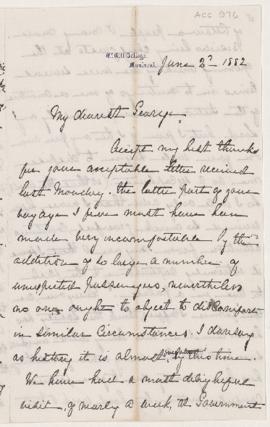 ACC 976
McGill College
Montreal
June 2nd 1882
My dearest George
Accept my best thanks
for your acceptable letter received
last Monday. the latter part of your
voyage I fear must have been
made very uncomfortable by the
addition of so large a number of
unexpected Passengers, nevertheless
no one ought to object to discomfort
in similar Circumstances. I daresay
as history it is almost by this time.
We have had a most delightful
visit, of nearly a week, the Government